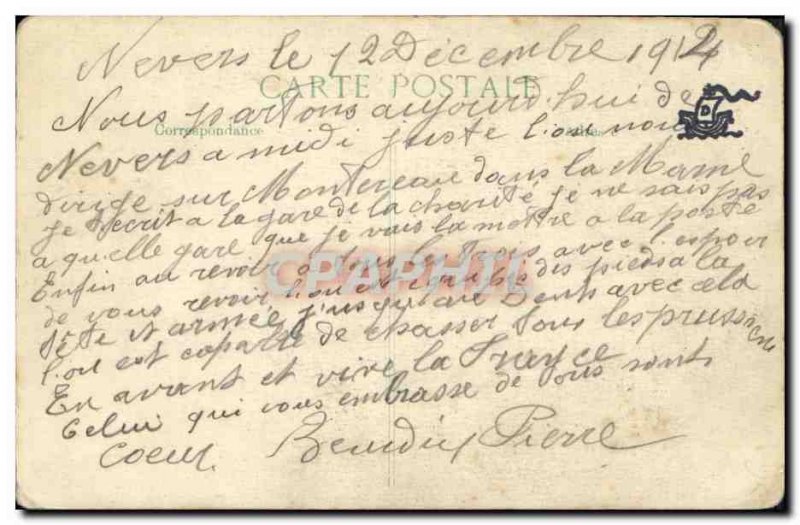 Nevers le 12 Décembre 1914
CARTE POSTALE
Nous partons aujourd hui de
Correspondance
Nevers a midi juste l'on nous
D
dirige sur Montereau dans la Marne
je t'écrit a la gare de la charité je ne sais pas
a quelle gare que je vais la mettre a la poste
Enfin au revoir a tous les trois avec l'espoir
de vous revoir l'on est équipé des pieds a la
tête et armée jusqu'au dents avec cela
l'on est capable de chasser tous les prussiens
En avant et vive la France
Celui qui vous embrasse de tous
coeur Pierre
CPAPHIL